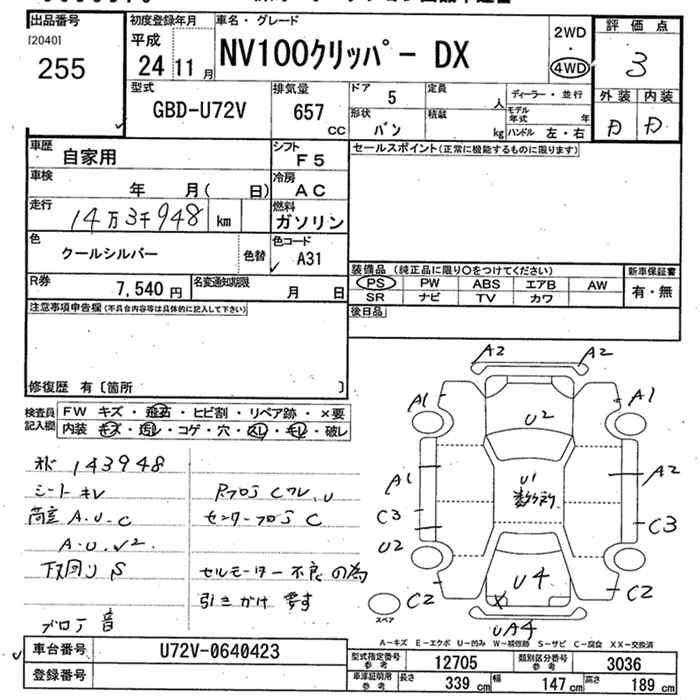 出品番号
[2040]
255
初度登録年月
平成
24 11月
車名・グレード
NV100クリッパー DX
2WD
・
4WD
評価点
3
外装 内装
D D
型式
GBD-U72V
排気量
657
CC
ドア 5
定員 人
ディーラー・並行
形状 バン
積載 kg
モデル年式 年
ハンドル 左・右
車歴 自家用
シフト F5
セールスポイント(正常に機能するものに限ります)
車検 年 月( 日)
冷房 AC
走行 14万3千948 km
燃料 ガソリン
色 クールシルバー
色替
色コード A31
装備品 (純正品に限り〇をつけてください)
新車保証書
PS PW ABS エアB AW
有・無
SR ナビ TV カワ
R券 7,540円
名変通知期限 月 日
後日品
注意事項申告欄(不具合内容等は具体的に記入して下さい)
修復歴 有〔箇所 〕
検査員記入欄
FW キズ・飛石・ヒビ割・リペア跡・×要
内装 キズ・汚レ・コゲ・穴・スレ・キレ・破レ
143948
シートキレ
A.U.C
A.U.√2.
下回りS
センターフロアC
セルモーター不良の為
引きかけ要す
音
A2 A2
A1 A1
U2
A1 A2
U1
C3 C3
U2
U4
C2 C2
UA4
スペア
A-キズ E-エクボ U-凹み W-補修跡 S-サビ C-腐食 XX-交換済
車台番号 U72V-0640423
登録番号
型式指定番号 参考 12705
類別区分番号 参考 3036
車庫証明用 参考 長さ 339cm 幅 147cm 高さ 189cm